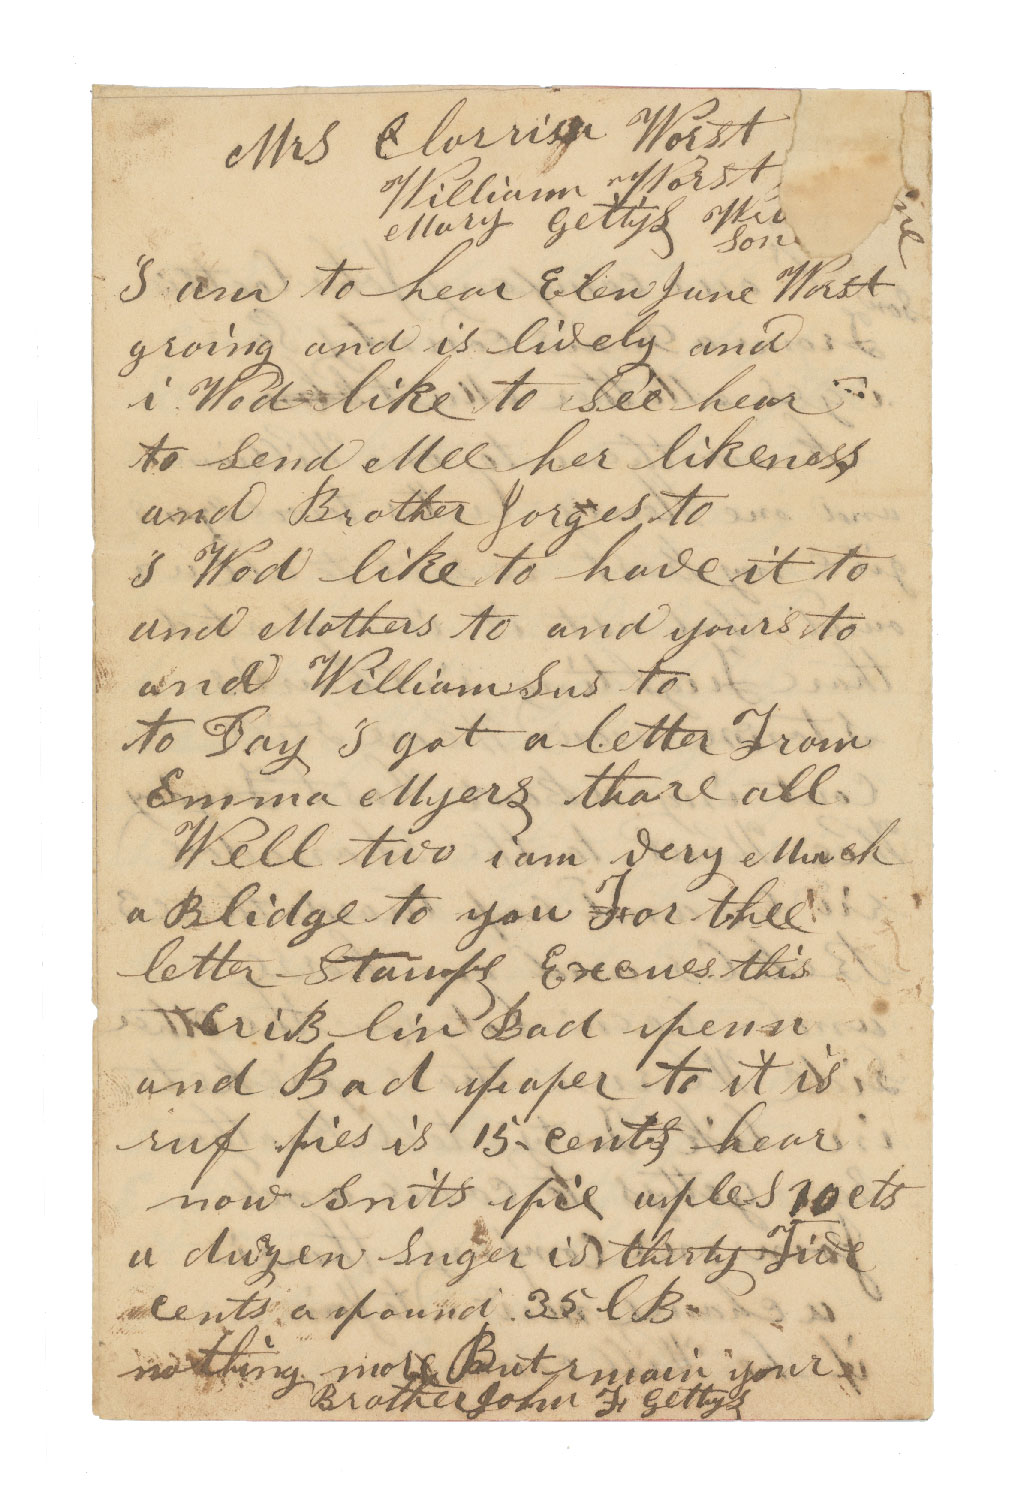 Mrs Clorrisa Worst
William Worst
Mary Gettys
Son
I am to hear Elen Jane Worst
groing and is lively and
i Wod like to see hear
to send Mee her likeness
and Brother Jorges to
I Wod like to have it to
and Mothers to and yours to
and William sus to
to Day I got a letter From
Emma Myers thare all
Well two i am very Much
a Blidge to you For thee
letter stamps Excues this
CriB lin Bad penn
and Bad paper to it is
ruf pies is 15 cents hear
now snits pie aples 10 cts
a duzen suger is thirty Five
cents a pound 35 l B
nothing more But rmain your
Brother John F Gettys